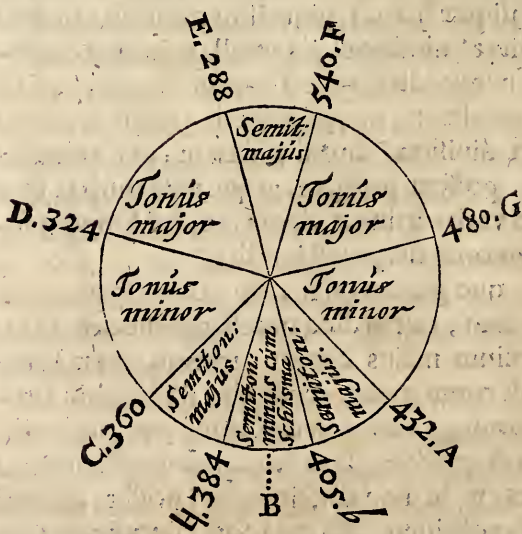 E.288
540.F
Semit:
majús
Tonús
major
Tonús
major
D.324
480.G
Tonús
minor
Tonús
minor
Semiton:
majús
Semiton:
minús cum
Schisma
Semiton:
majús.
C.360
432.A
♮.384
B
405.b